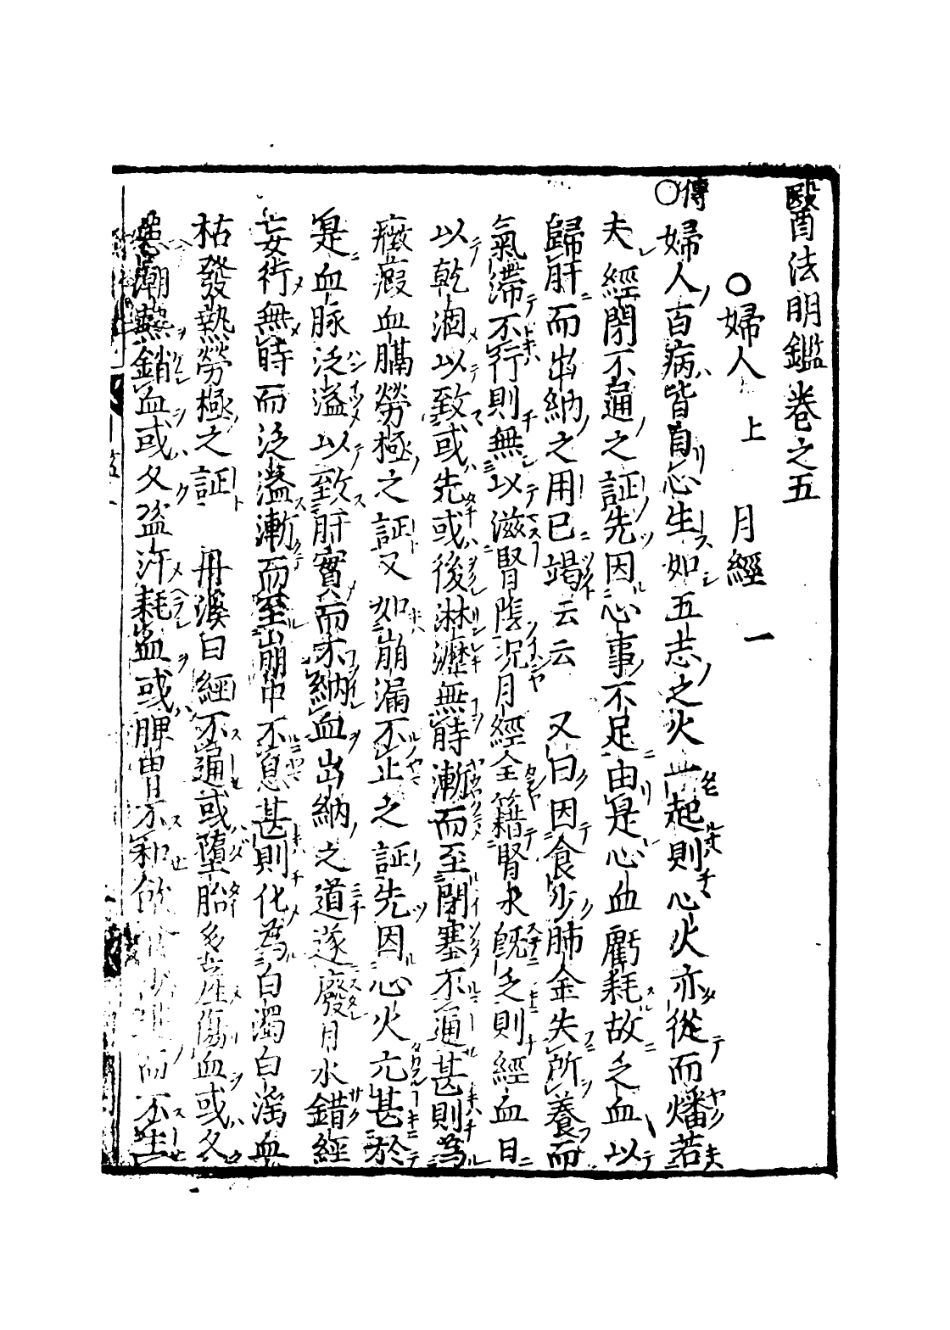 醫法明鑑巻之五
○婦人上 月經 一
傳○婦人百病皆自心生如五志之火一起則心火亦從而燔若
夫經閉不通之証先因心事不足由是心血虧耗故乏血以
歸肝而出納之用已竭云云 又曰因食少肺金失所養而
氣滯不行則無以滋腎陰况月經全籍腎水既乏則經血日
以乾涸以致或先或後淋瀝無時漸而至閉塞不通甚則為
癥瘕血膈勞極之証又如崩漏不止之証先因心火亢甚於
是血脉泛溢以致肝實而不納血出納之道遂廢月水錯經
妄行無時而泛溢漸而至崩中不息甚則化為白濁白淫血
枯發熱勞極之証 丹溪曰經不通或墮胎多産傷血或久
患潮熱銷血或久盗汗耗血或脾胃不和飲食少進而不生